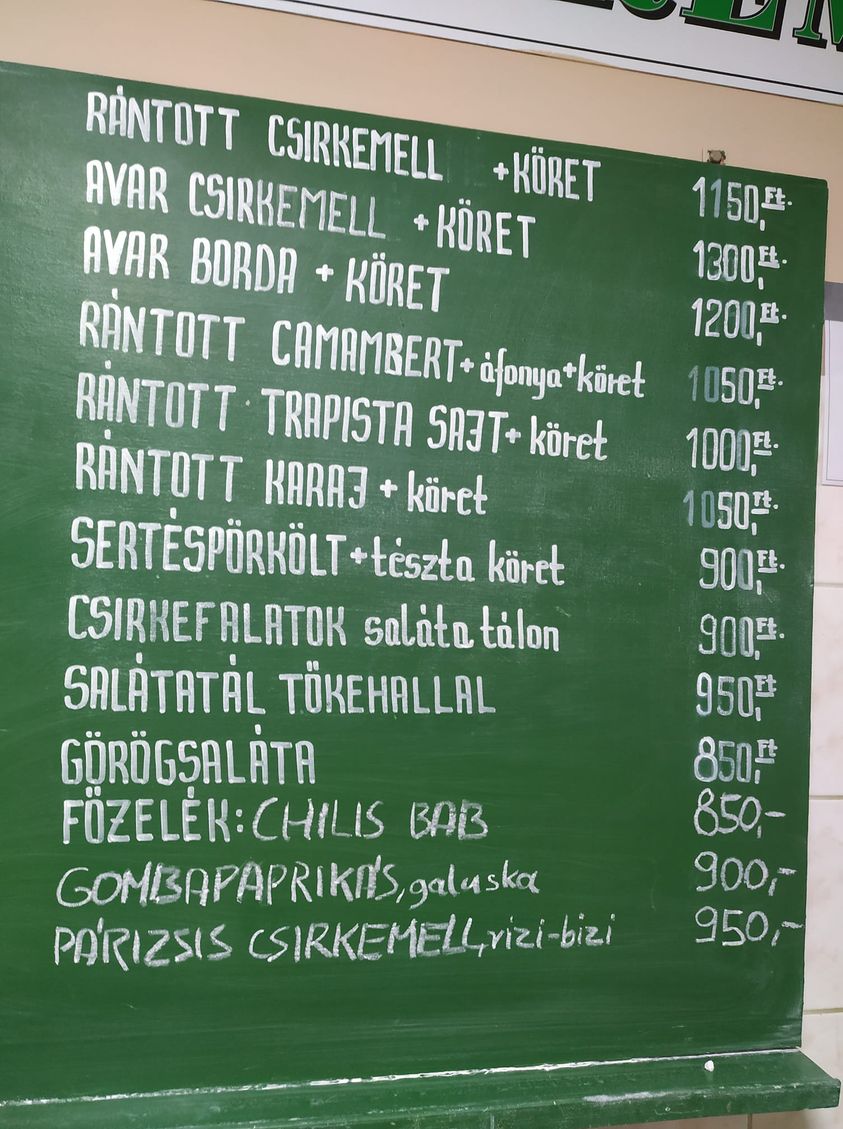 RÁNTOTT CSIRKEMELL +KÖRET 1150,Ft.
AVAR CSIRKEMELL +KÖRET 1300,Ft.
AVAR BORDA + KÖRET 1200,Ft.
RÁNTOTT CAMAMBERT+áfonya+köret 1050,Ft.
RÁNTOTT TRAPISTA SAJT+ köret 1000,Ft.
RÁNTOTT KARAJ + köret 1050,Ft.
SERTÉSPÖRKÖLT+tészta köret 900,Ft.
CSIRKEFALATOK saláta tálon 900,Ft.
SALÁTATÁL TŐKEHALLAL 950,Ft
GÖRÖGSALÁTA 850,Ft
FŐZELÉK: CHILIS BAB 850,-
GOMBAPAPRIKÁS, galuska 900,-
PÁRIZSIS CSIRKEMELL, rizi-bizi 950,-